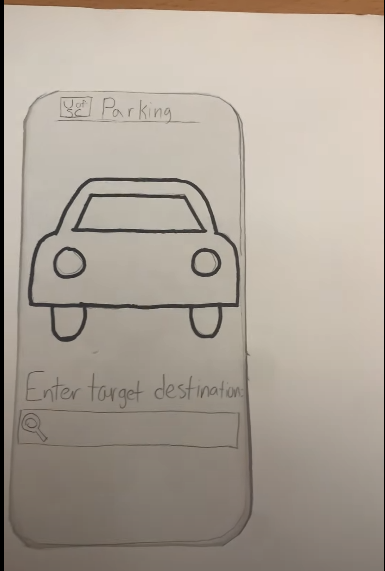 U of SC Parking
Enter target destination: